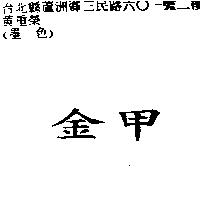 台北縣蘆洲鄉三民路六〇一號二樓
黃重榮
(墨 色)
金甲